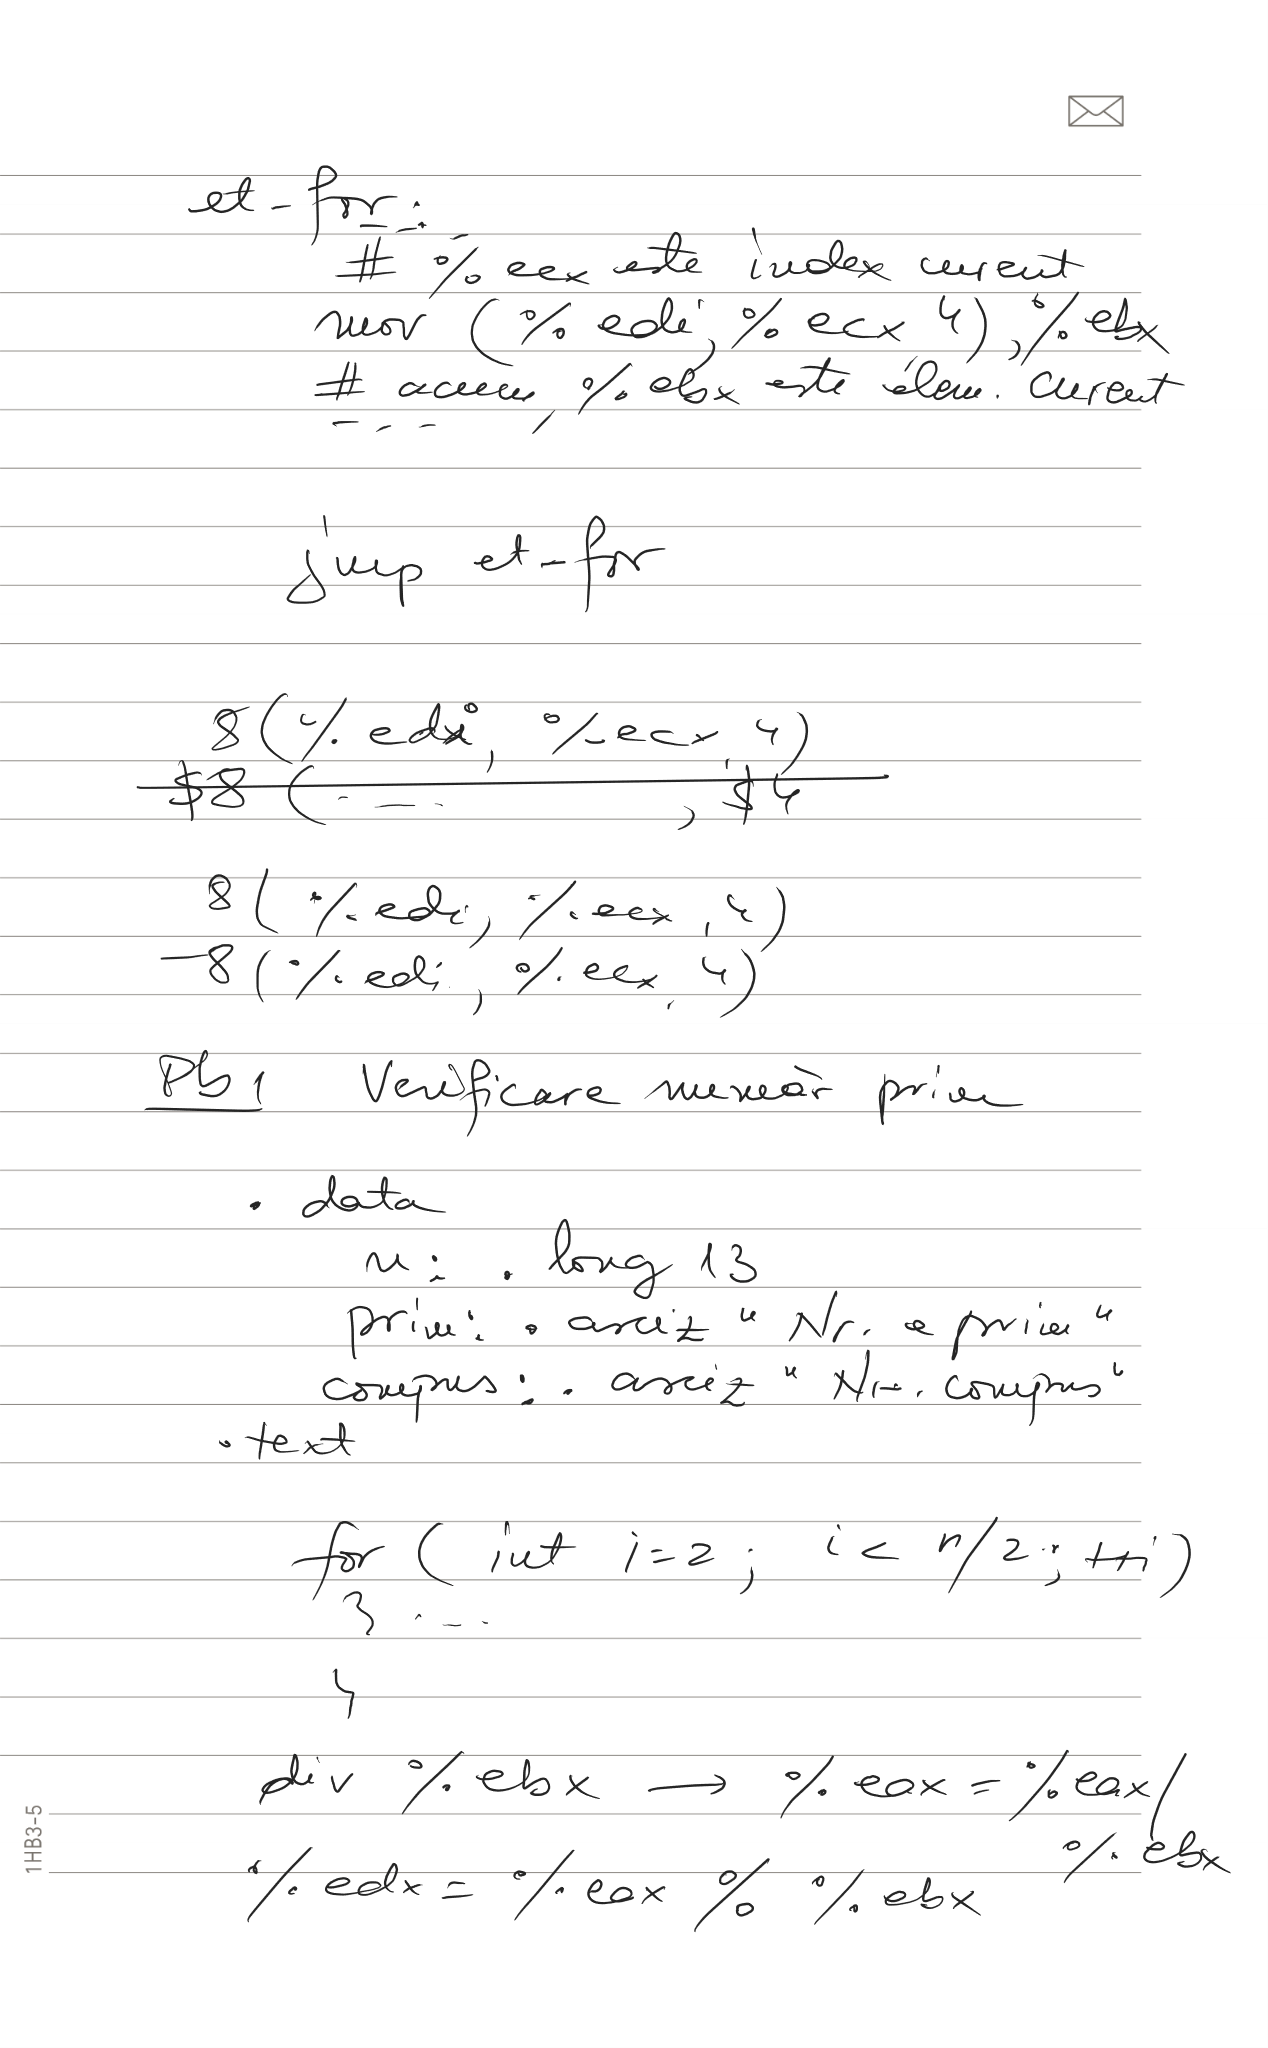 et-for:
# %ecx este index curent
mov (%edi, %ecx 4), %ebx
# acum, %ebx este elem. curent
jmp et-for
8(%edi, %ecx 4)
$8 ( ... , $4
8(%edi, %ecx, 4)
-8(%edi, %ecx, 4)
Pb 1 Verificare număr prim
.data
n: .long 13
prim: .asciz "Nr. e prim"
compus: .asciz "Nr. compus"
.text
for ( int i=2; i < n/2; ++i)
{ ...
}
div %ebx → %eax = %eax/
%ebx
%edx = %eax % %ebx
1HB3-5